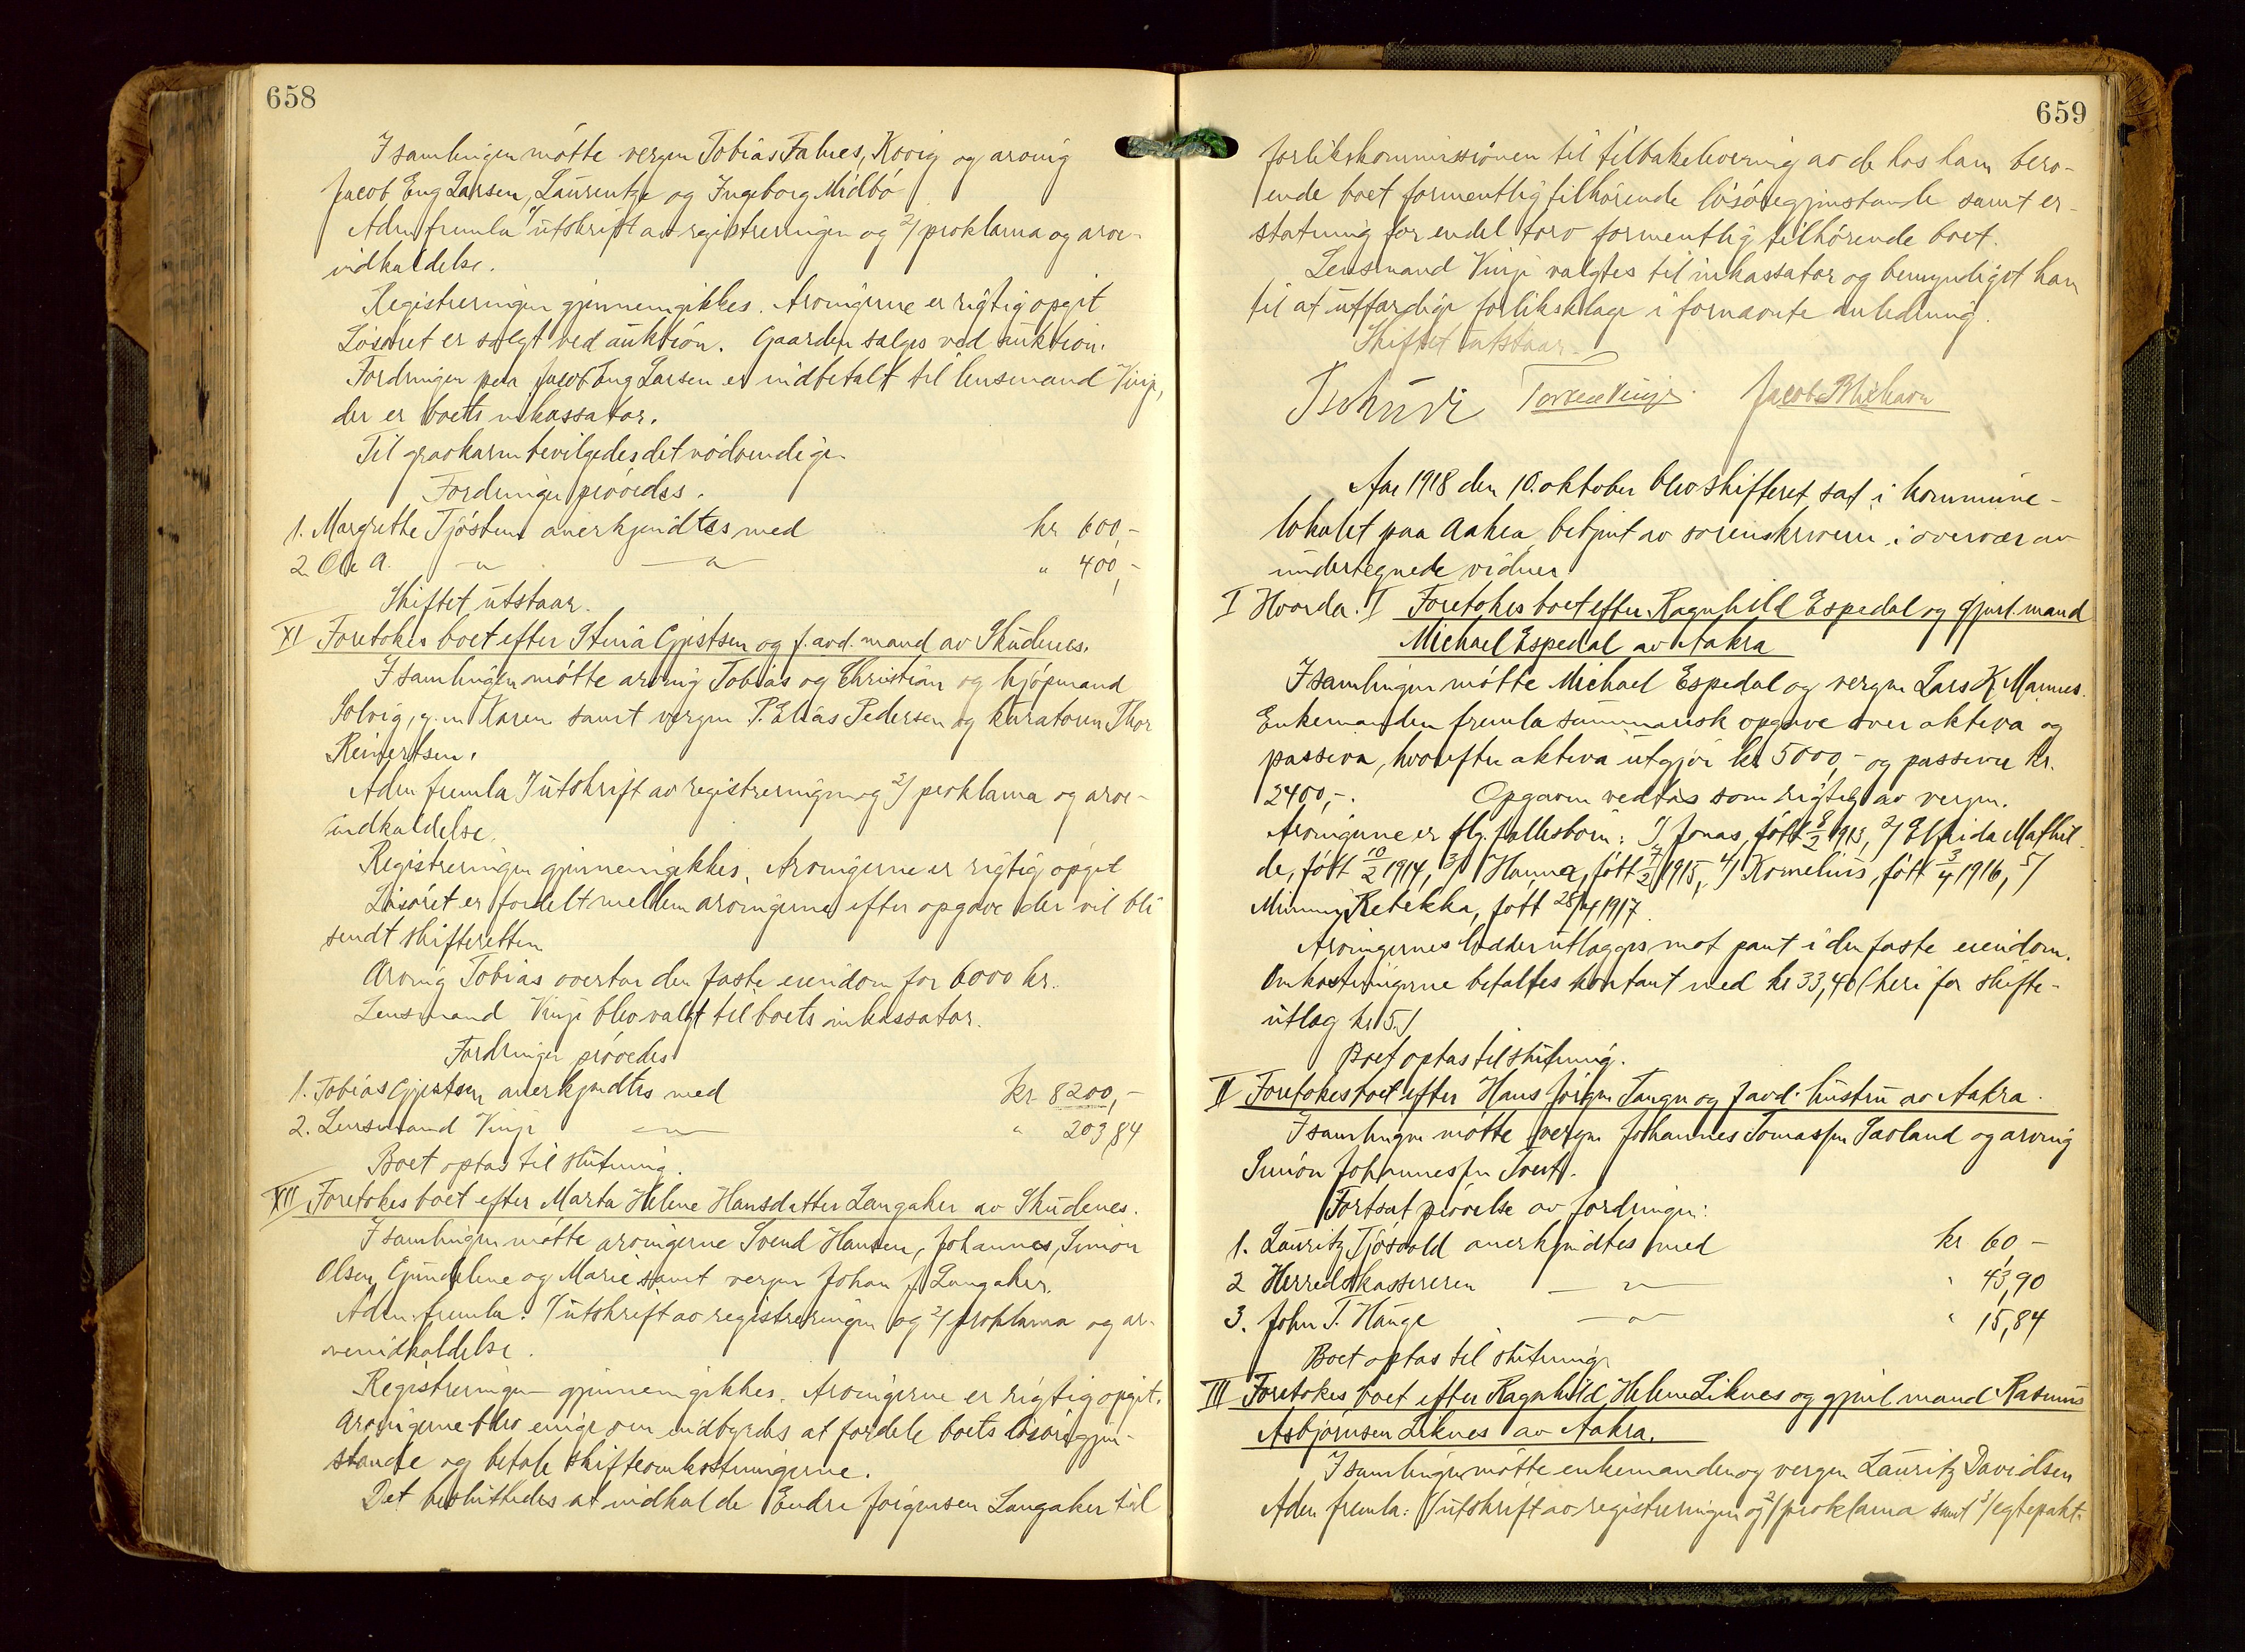 658
I samlingen møtte vergen Tobias Falnes, Kvvig og arving
Jacob Eng Larsen, Laurentze og Ingeborg Midbø
Adm fremla 1/ utskrift av registreringen og 2/ proklama og arve-
indkaldelse.
Registreringen gjennemgikkes. Arvingerne er rigtig opgit
Løsøret er solgt ved auktion. Gaarden sælges ved auktion.
Fordringen paa Jacob Eng Larsen er indbetalt til lensmand Vinje,
der er boets inkassator.
Til gravkarm bevilgedes det nødvendige.
Fordringer prøvedes.
1. Margrethe Tjøstem anerkjendtes med kr 600,-
2. Ole A. -"- -"- " 400,-
Skiftet utstaar.
XI Foretokes boet efter Stina Gjertsen og f. avd. mand av Skudenes.
I samlingen møtte arving Tobias og Christian og kjøpmand
Solvig, g. m. Karen samt vergen P. Elias Pedersen og kuratoren Thor
Reinertsen.
Adm fremla 1/ utskrift av registreringen og 2/ proklama og arve-
indkaldelse.
Registreringen gjennemgikkes. Arvingerne er rigtig opgit
Løsøret er fordelt mellem arvingerne efter opgave der vil bli
sendt skifteretten
Arving Tobias overtar den faste eiendom for 6000 kr.
Lensmand Vinje blev valgt til boets inkassator.
Fordringer prøvedes
1. Tobias Gjertsen anerkjendtes med kr 8200,-
2. Lensmand Vinje -"- " 203,84
Boet optas til slutning.
XII Foretokes boet efter Marta Helene Hansdatter Langaker av Skudenes.
I samlingen møtte arvingerne Svend Hansen, Johannes, Simon
Olsen, Gundeline og Marie samt vergen Johan J. Langaker.
Adm. fremla: 1/ utskrift av registreringen og 2/ proklama og ar-
veindkaldelse.
Registreringen gjennemgikkes. Arvingerne er rigtig opgit.
Arvingerne blev enige om indbyrdes at fordele boets løsøregjen-
stande og betale skifteomkostningerne.
Det besluttedes at indkalde Endre Jørgensen Langaker til
659
forlikskommissionen til tilbakelevering av de hos ham bero-
ende boet formentlig tilhørende løsøregjenstande samt er-
statning for endel torv formentlig tilhørende boet.
Lensmand Vinje valgtes til inkassator og bemyndiget han
til at utfærdige forliksklage i fornævnte anledning.
Skiftet utstaar.
Tschudi Torkel Vinje. Jacob
Aar 1918 den 10. oktober blev skifteret sat i kommune-
lokalet paa Aakra, betjent av sorenskriveren i overvær av
undertegnede vidner
Hvorda. I Foretokes boet efter Ragnhild Espedal og gjenl. mand
Michael Espedal av Aakra
I samlingen møtte Michael Espedal og vergen Lars K. Mannes.
Enkemanden fremla summarisk opgave over aktiva og
passiva, hvorefter aktiva utgjør kr 5000,- og passiva kr.
2400,-. Opgaven vedtas som rigtig av vergen.
Arvingerne er flg. fællesbørn: 1/ Jonas, født 8/2 1913, 2/ Elfrida Mathil-
de, født 10/2 1914, 3/ Hanna, født 7/2 1915, 4/ Kornelius, født 3/4 1916, 5/
Minny Rebekka, født 28/4 1917.
Arvingernes lodder utlægges mot pant i den faste eiendom.
Omkostningerne betaltes kontant med kr 33,40 (heri for skifte-
utlæg kr 5.)
Boet optas til slutning.
II Foretokes boet efter Hans Jørgen Tangen og f. avd. hustru av Aakra.
I samlingen møtte vergen Johannes Tomassen Sæland og arving
Simon Johannessen Tveit.
Fortsat prøvelse av fordringer:
1. Lauritz Tjøsvold anerkjendtes med kr 60,-
2 Herredskassereren -"- " 43,90
3. John T. Hauge -"- " 15,84
Boet optas til slutning
III Foretokes boet efter Ragnhild Helene Liknes og gjenl. mand Rasmus
Asbjørnsen Liknes av Aakra.
I samlingen møtte enkemanden og vergen Lauritz Davidsen
Adm fremla: 1/ utskrift av registreringen og 2/ proklama samt 3/ egtepakt.